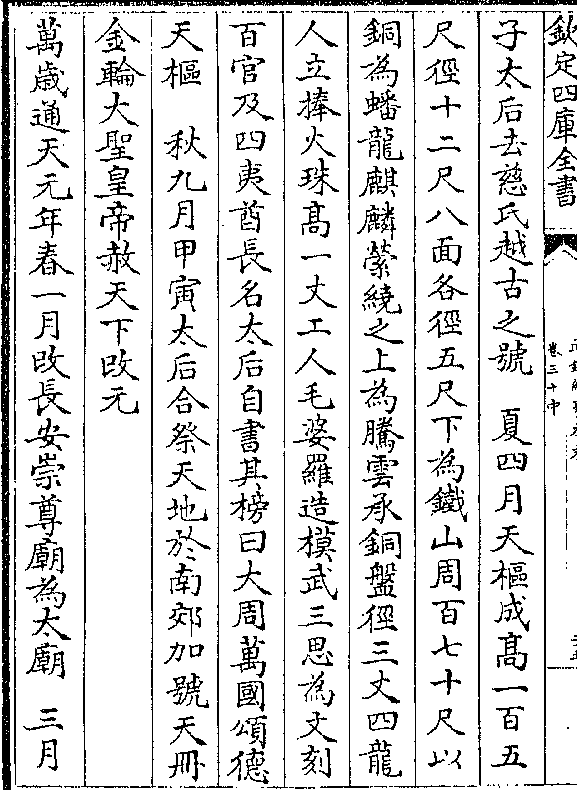 欽定四庫全書
卷三十中
子太后去慈氏越古之號　夏四月天樞成髙一百五
尺徑十二尺八面各徑五尺下為鐵山周百七十尺以
銅為蟠龍麒麟縈繞之上為騰雲承銅盤徑三丈四龍
人立捧火珠髙一丈工人毛婆羅造模武三思為文刻
百官及四夷酋長名太后自書其榜曰大周萬國頌德
天樞　秋九月甲寅太后合祭天地於南郊加號天冊
金輪大聖皇帝赦天下改元
萬歲通天元年春一月改長安崇尊廟為太廟　三月